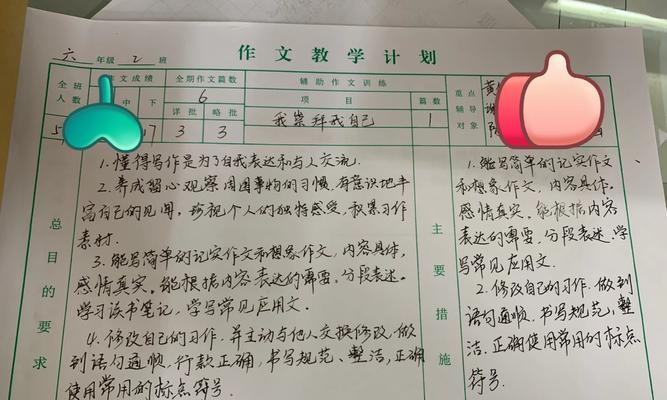 作文教学计划
六年级2班
全班人数
作文成绩
中 下
全期作文篇数
6
详批 略批
3 3
辅助作文训练
项目 篇数
我崇拜我自己 1
重点辅导对象
总目的要求
1. 懂得写作是为了自我表达和与人交流.
2. 养成留心观察周围事物的习惯, 有意识地丰
富自己的见闻, 珍视个人的独特感受, 积累习作
素材.
3. 能写简单的记实作文和想象作文, 内容具体,
感情真实. 能根据内容表达的需要, 分段表述.
学习读书笔记, 学写常见应用文.
4. 修改自己的习作, 并主动与他人交换修改, 做
到语句通顺, 行款正确, 书写规范、整洁, 正确
使用常用的标点符号.
主要措施
1. 能写简单的记实作文
和想象作文, 内容具体,
感情真实. 能根据内容
表达的需要, 分段表述. 学
写常见应用文.
2. 修改自己的习作. 做到
语句通顺, 书写规范, 整
洁. 正确使用常用的标点
符号.